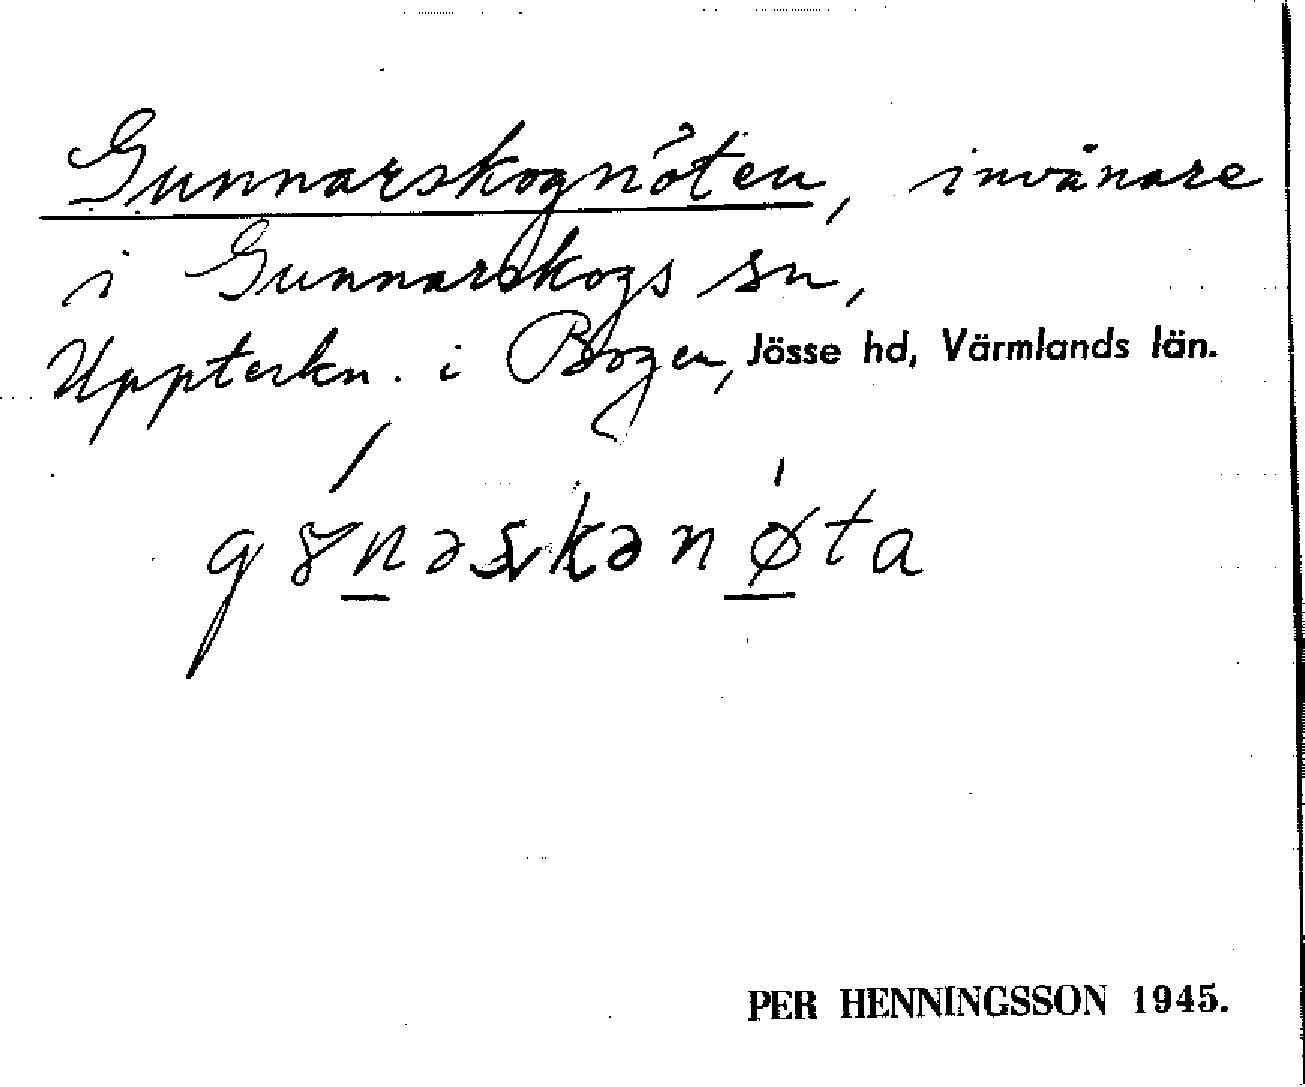 Gunnarskognöten, invånare
i Gunnarskogs sn,
Uppteckn. i Bogen, Jösse hd, Värmlands län.
gɤ́nəskənǿta
PER HENNINGSSON 1945.